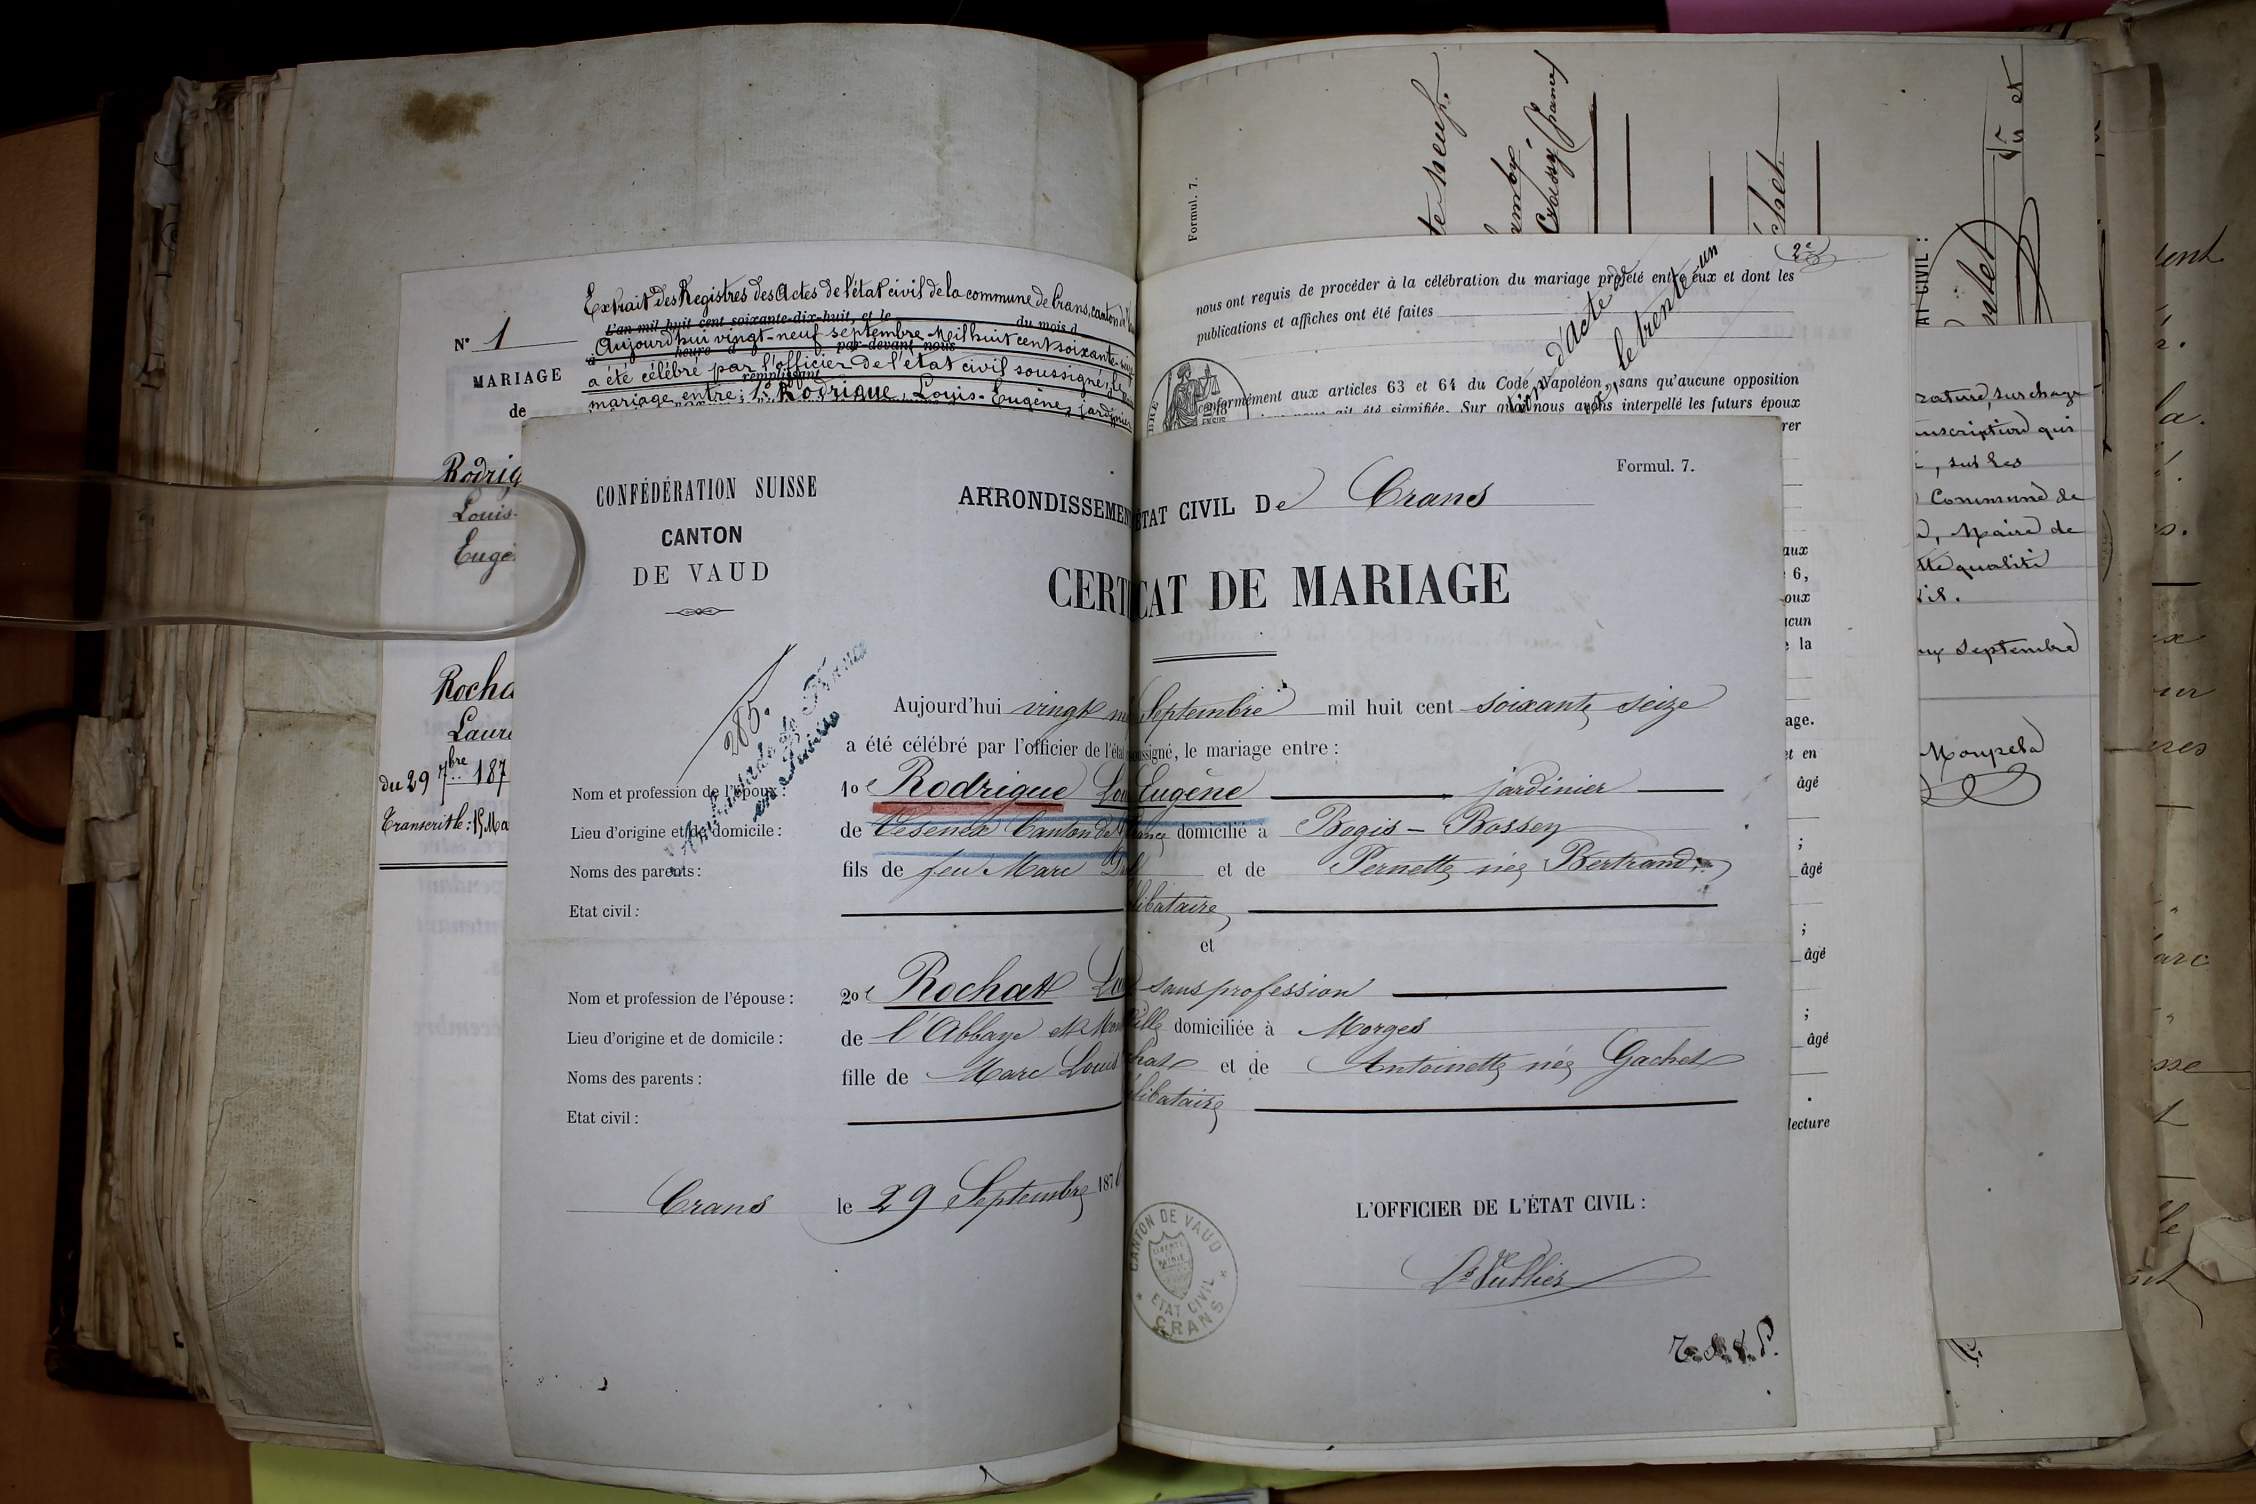 Extrait des Registres des Actes de l'état civil de la commune de Crans, canton de
N° 1
L'an mil huit cent soixante-dix-huit, et le du mois d
Aujourd'hui vingt-neuf septembre Mil huit cent soixante-seize
à heure d par-devant nous
a été célébré par l'officier de l'état civil soussigné, le
remplissant
mariage entre: 1° Rodrigue, Louis-Eugène, jardinier
MARIAGE
de
Rodrig
Louis-
Eugè
Rocha
Laur
du 29 7bre 187
Transcrit le: 15 Ma
Formul. 7.
2e
nous ont requis de procéder à la célébration du mariage projeté entre eux et dont les
publications et affiches ont été faites
d'acte
le trente-un
conformément aux articles 63 et 64 du Code Napoléon, sans qu'aucune opposition
ait été signifiée. Sur quoi nous avons interpellé les futurs époux
rer
CONFÉDÉRATION SUISSE
CANTON
DE VAUD
Formul. 7.
ARRONDISSEMEN ÉTAT CIVIL De Crans
CERTI CAT DE MARIAGE
285.
Ambassade de France
en Suisse
Aujourd'hui vingt n Septembre mil huit cent soixante seize
a été célébré par l'officier de l'état soussigné, le mariage entre :
Nom et profession de l'époux : 1o Rodrigue Lou Eugène jardinier
Lieu d'origine et de domicile : de Vesenex Canton de domicilié à Bogis - Bossey
Noms des parents : fils de feu Marc et de Pernette née Bertrand
Etat civil : libataire
et
Nom et profession de l'épouse : 2o Rochat sans profession
Lieu d'origine et de domicile : de l'Abbaye et Mon ville domiciliée à Morges
Noms des parents : fille de Marc Louis chat et de Antoinette née Gachet
Etat civil : élibataire
Crans le 29 Septembre 1876
L'OFFICIER DE L'ÉTAT CIVIL :
CANTON DE VAUD
LIBERTÉ
PATRIE
ETAT CIVIL
CRANS
aux
6,
oux
ucun
la
age.
et en
âgé
;
âgé
;
âgé
;
âgé
lecture
ÉTAT CIVIL :
rature, surcharge
sur les
Commune de
Maire de
tte qualité
Septembre